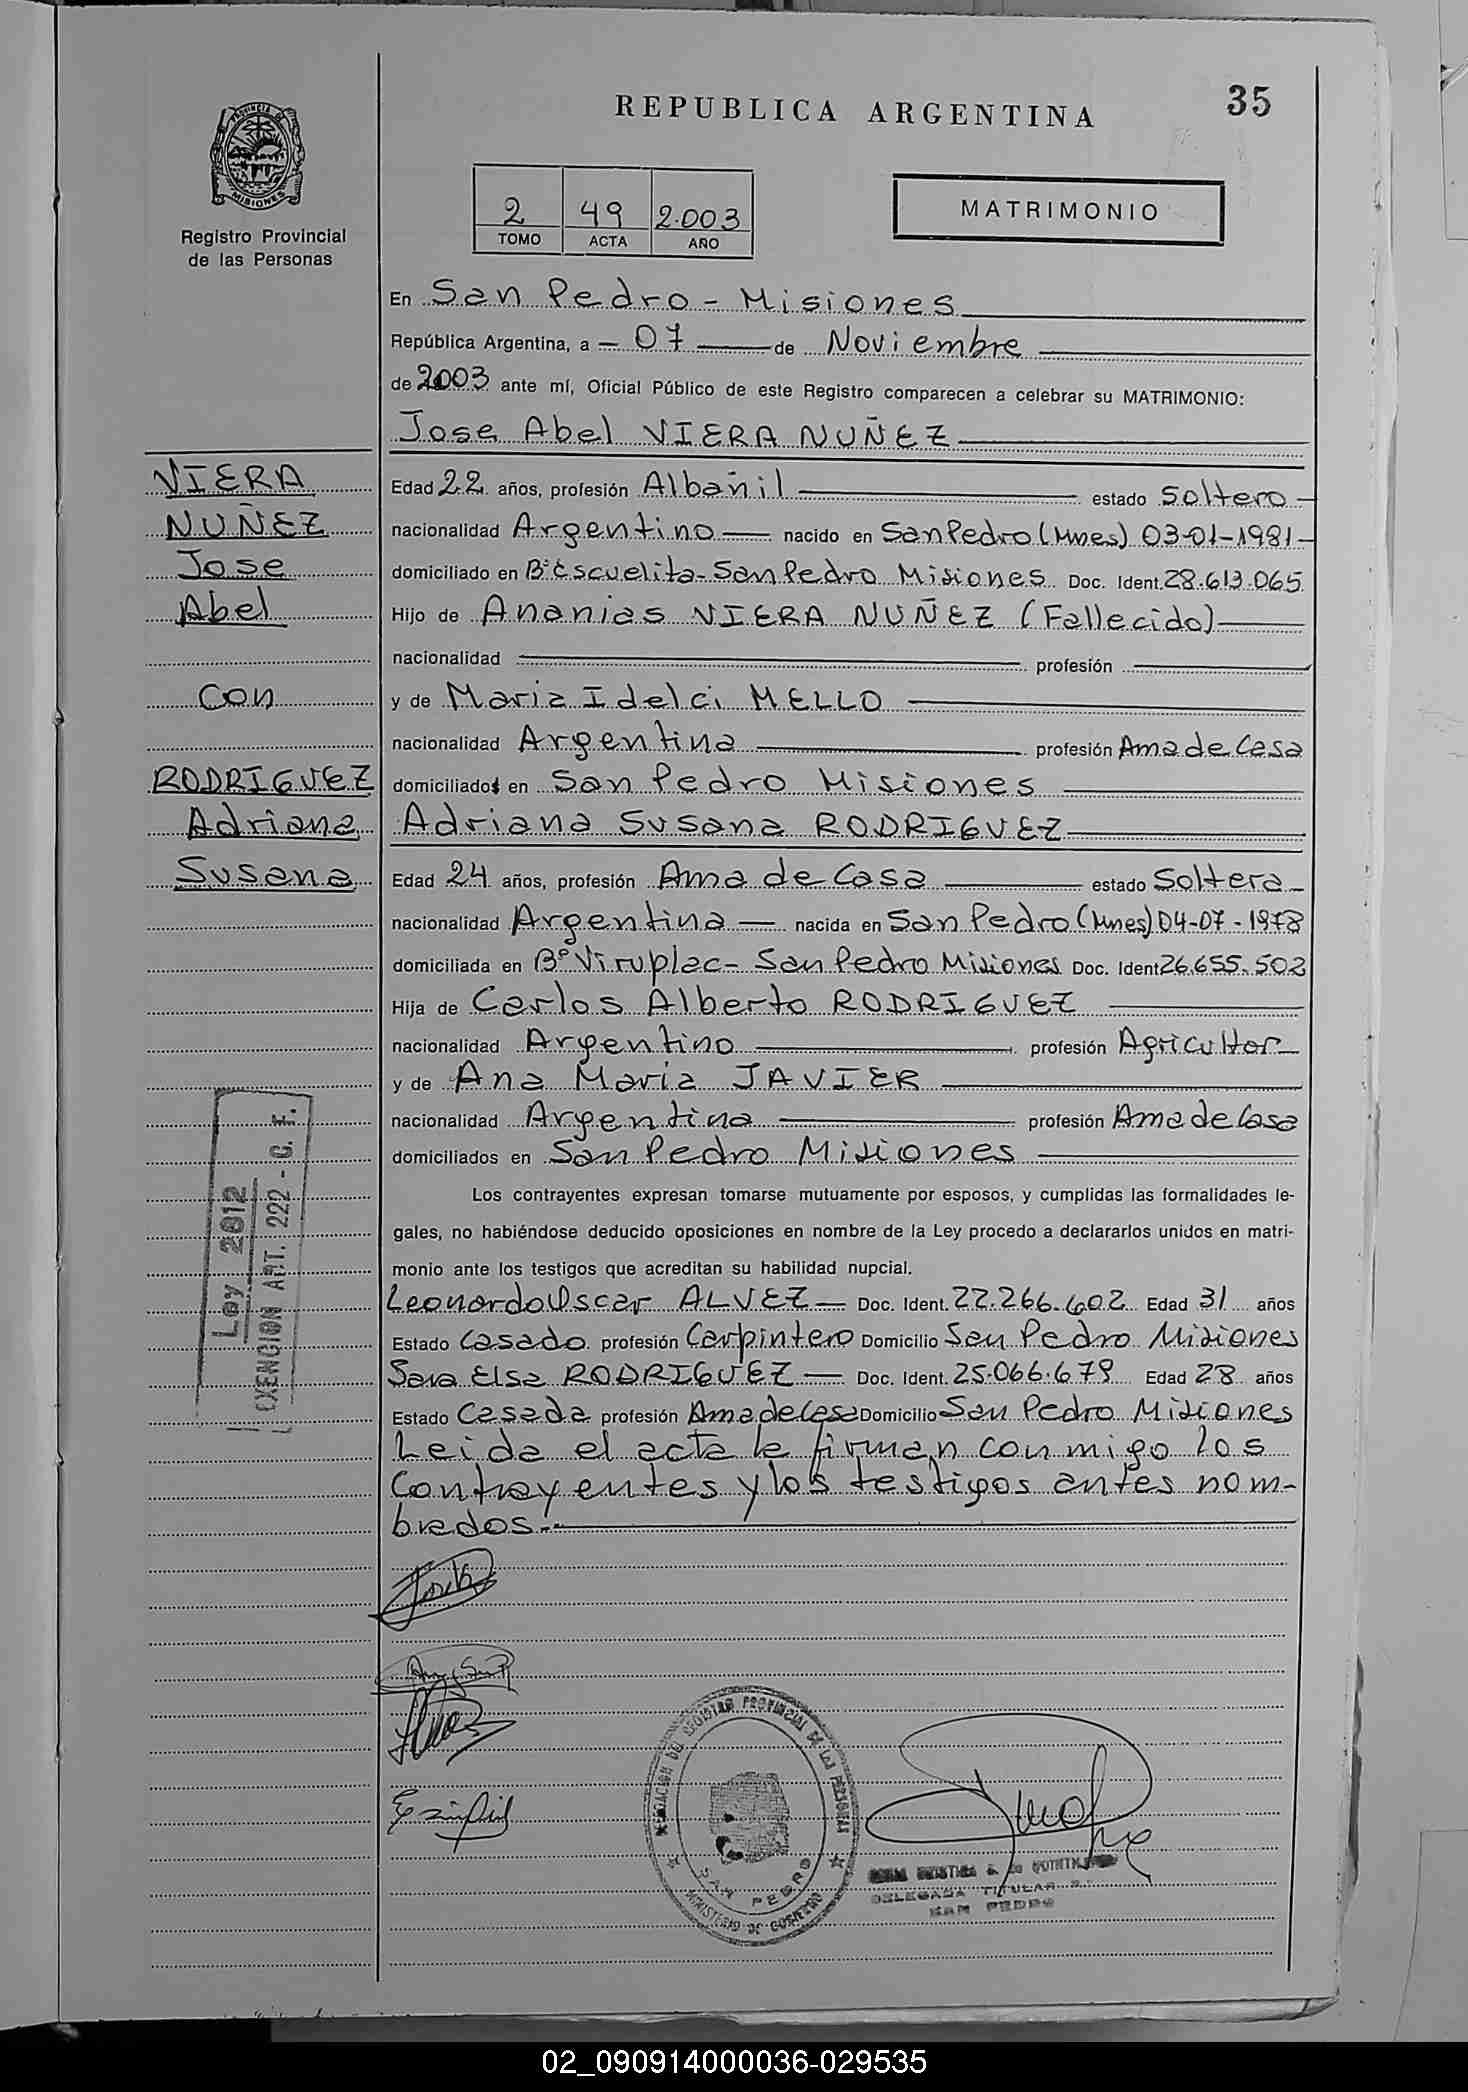 35
REPUBLICA ARGENTINA
PROVINCIA DE
MISIONES
Registro Provincial
de las Personas
2 49 2.003
TOMO ACTA AÑO
MATRIMONIO
En San Pedro - Misiones
República Argentina, a - 07 - de Noviembre
de 2003 ante mí, Oficial Público de este Registro comparecen a celebrar su MATRIMONIO:
Jose Abel VIERA NUÑEZ
VIERA
NUÑEZ
Jose
Abel
Con
RODRIGUEZ
Adriana
Susana
Edad 22 años, profesión Albañil estado Soltero
nacionalidad Argentino nacido en San Pedro (Mnes) 03-01-1981
domiciliado en Bº Escuelita - San Pedro Misiones Doc. Ident. 28.613.065
Hijo de Ananias VIERA NUÑEZ (Fallecido)
nacionalidad profesión
y de Maria Idelci MELLO
nacionalidad Argentina profesión Ama de Casa
domiciliados en San Pedro Misiones
Adriana Susana RODRIGUEZ
Edad 24 años, profesión Ama de Casa estado Soltera
nacionalidad Argentina nacida en San Pedro (Mnes) 04-07-1978
domiciliada en Bº Viruplac - San Pedro Misiones Doc. Ident 26.655.502
Hija de Carlos Alberto RODRIGUEZ
nacionalidad Argentino profesión Agricultor
y de Ana Maria JAVIER
nacionalidad Argentina profesión Ama de Casa
domiciliados en San Pedro Misiones
Los contrayentes expresan tomarse mutuamente por esposos, y cumplidas las formalidades le-
gales, no habiéndose deducido oposiciones en nombre de la Ley procedo a declararlos unidos en matri-
monio ante los testigos que acreditan su habilidad nupcial.
Leonardo Oscar ALVEZ - Doc. Ident. 22.266.602 Edad 31 años
Estado Casado profesión Carpintero Domicilio San Pedro Misiones
Sara Elsa RODRIGUEZ - Doc. Ident. 25.066.679 Edad 28 años
Estado Casada profesión Ama de Casa Domicilio San Pedro Misiones
Leida el acta la firman conmigo los
Contrayentes y los testigos antes nom-
brados.-
Ley 2812
EXENCION ART. 222 - C. F.
DEL REGISTRO PROVINCIAL DE LAS PERSONAS
SAN PEDRO
MINISTERIO DE GOBIERNO
DELEGADA TITULAR
SAN PEDRO
02_090914000036-029535